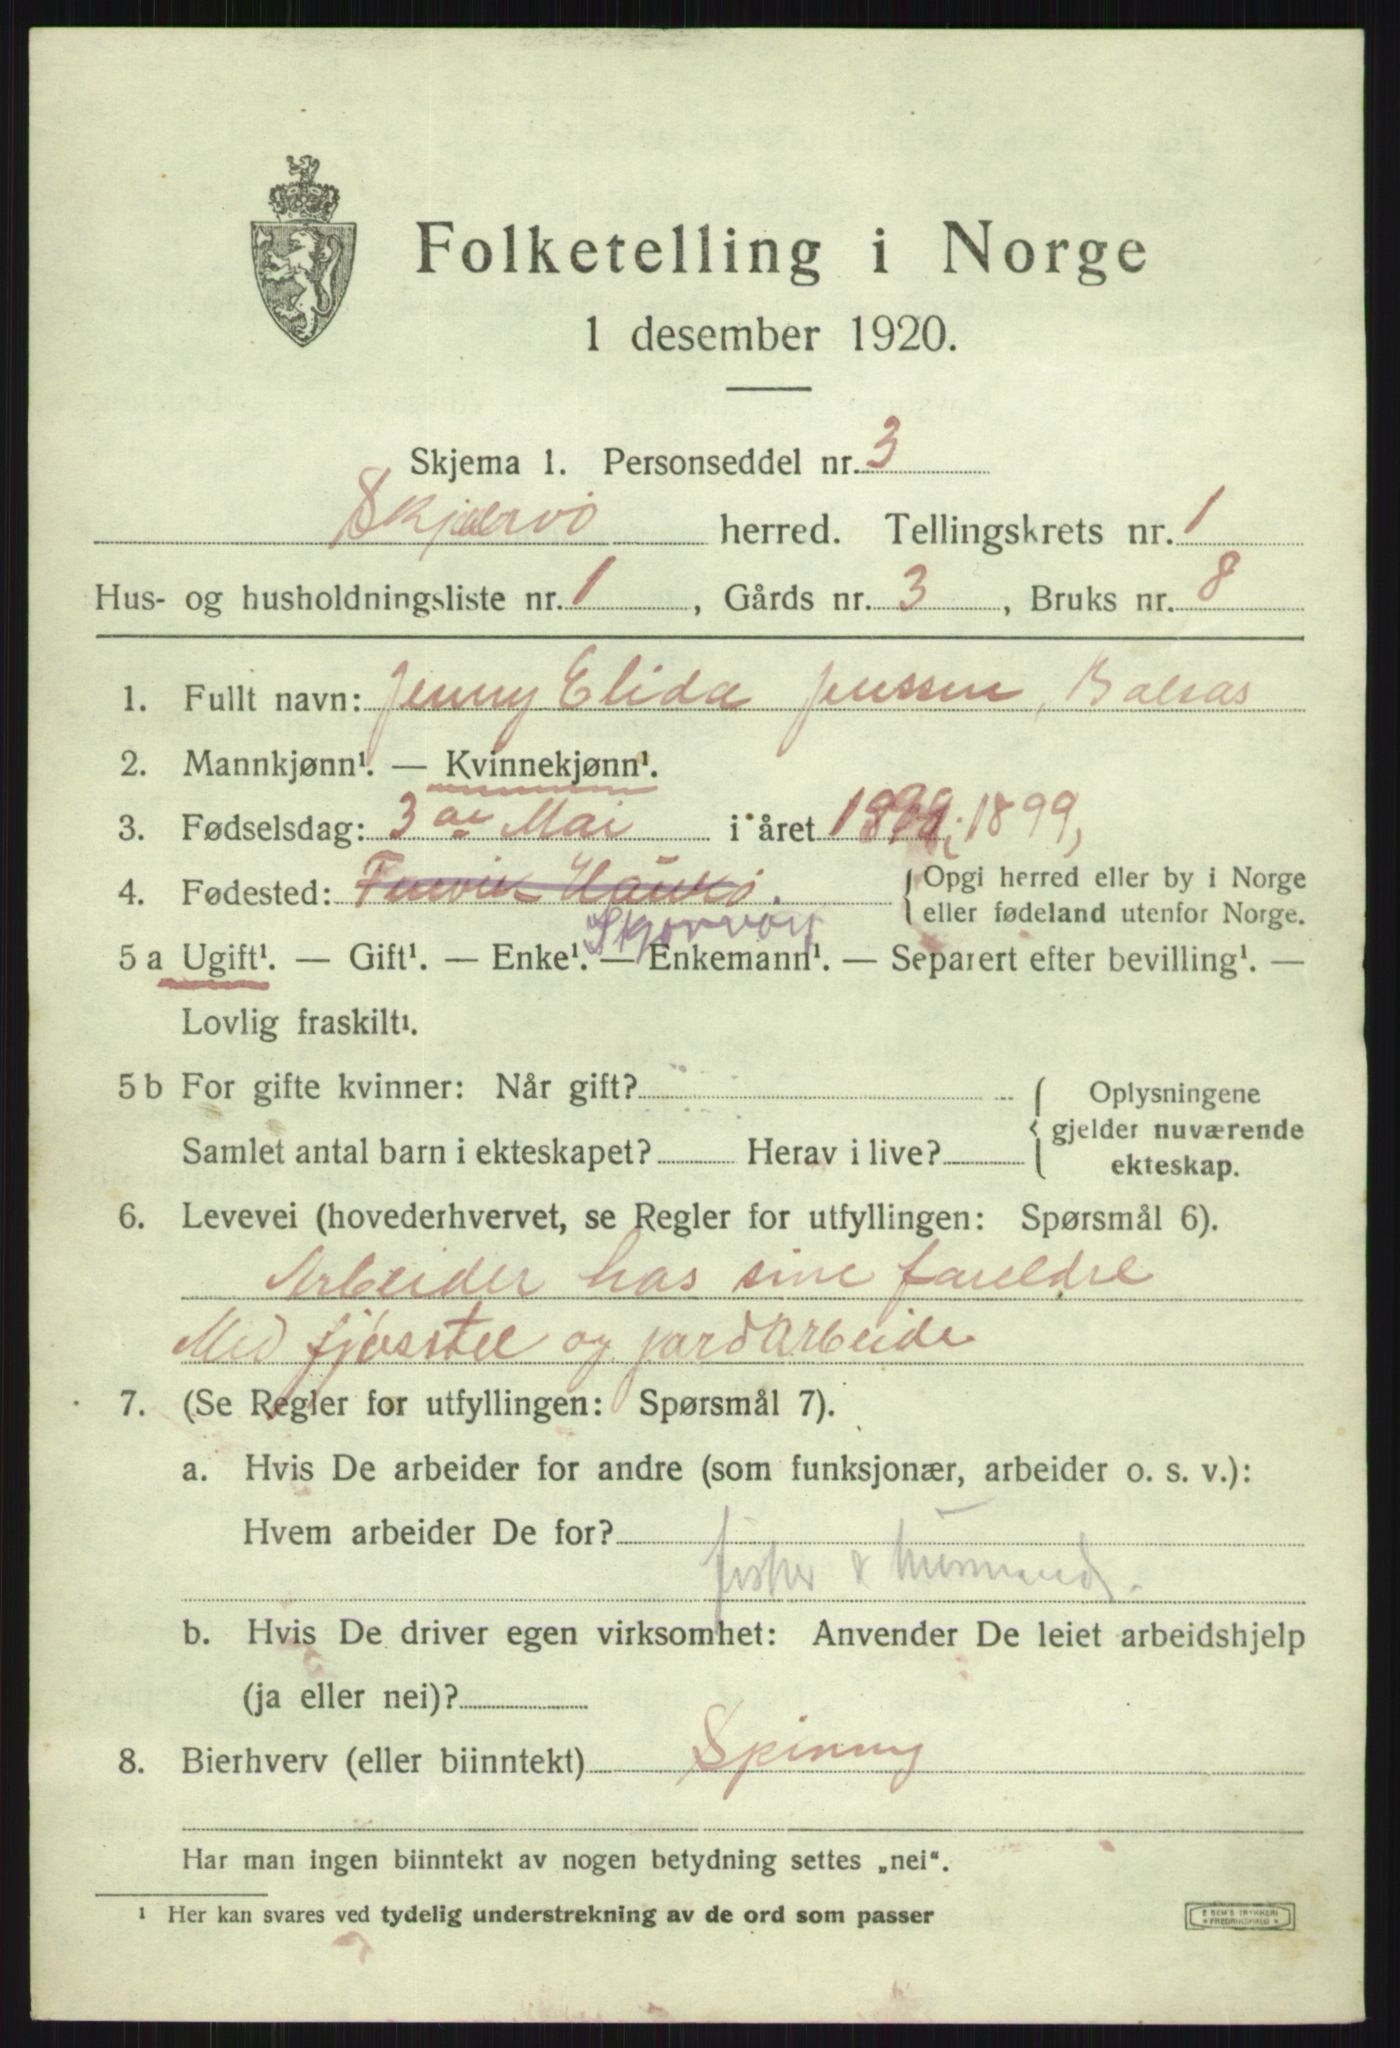 Folketelling i Norge
1 desember 1920.
Skjema 1. Personseddel nr. 3
Skjærvö herred. Tellingskrets nr. 1
Hus- og husholdningsliste nr. 1, Gårds nr. 3, Bruks nr. 8
1. Fullt navn: Jenny Elida Jenssen,
2. Mannkjønn¹. — Kvinnekjønn¹.
3. Fødselsdag: 3 Mai i året 1899,
4. Fødested: Haukö. {Opgi herred eller by i Norge
eller fødeland utenfor Norge.
Skjervöy
5 a Ugift¹. — Gift¹. — Enke¹. — Enkemann¹. — Separert efter bevilling¹. —
Lovlig fraskilt¹.
5 b For gifte kvinner: Når gift? { Oplysningene
gjelder nuværende
Samlet antal barn i ekteskapet? Herav i live?
ekteskap.
6. Levevei (hovederhvervet, se Regler for utfyllingen: Spørsmål 6).
Arbeider hos sine foreldre
Med fjösstel og jordarbeide
7. (Se Regler for utfyllingen: Spørsmål 7).
a. Hvis De arbeider for andre (som funksjonær, arbeider o. s. v.):
Hvem arbeider De for?
fisker &
b. Hvis De driver egen virksomhet: Anvender De leiet arbeidshjelp
(ja eller nei)?
8. Bierhverv (eller biinntekt) Spinning
Har man ingen biinntekt av nogen betydning settes „nei“.
¹ Her kan svares ved tydelig understrekning av de ord som passer